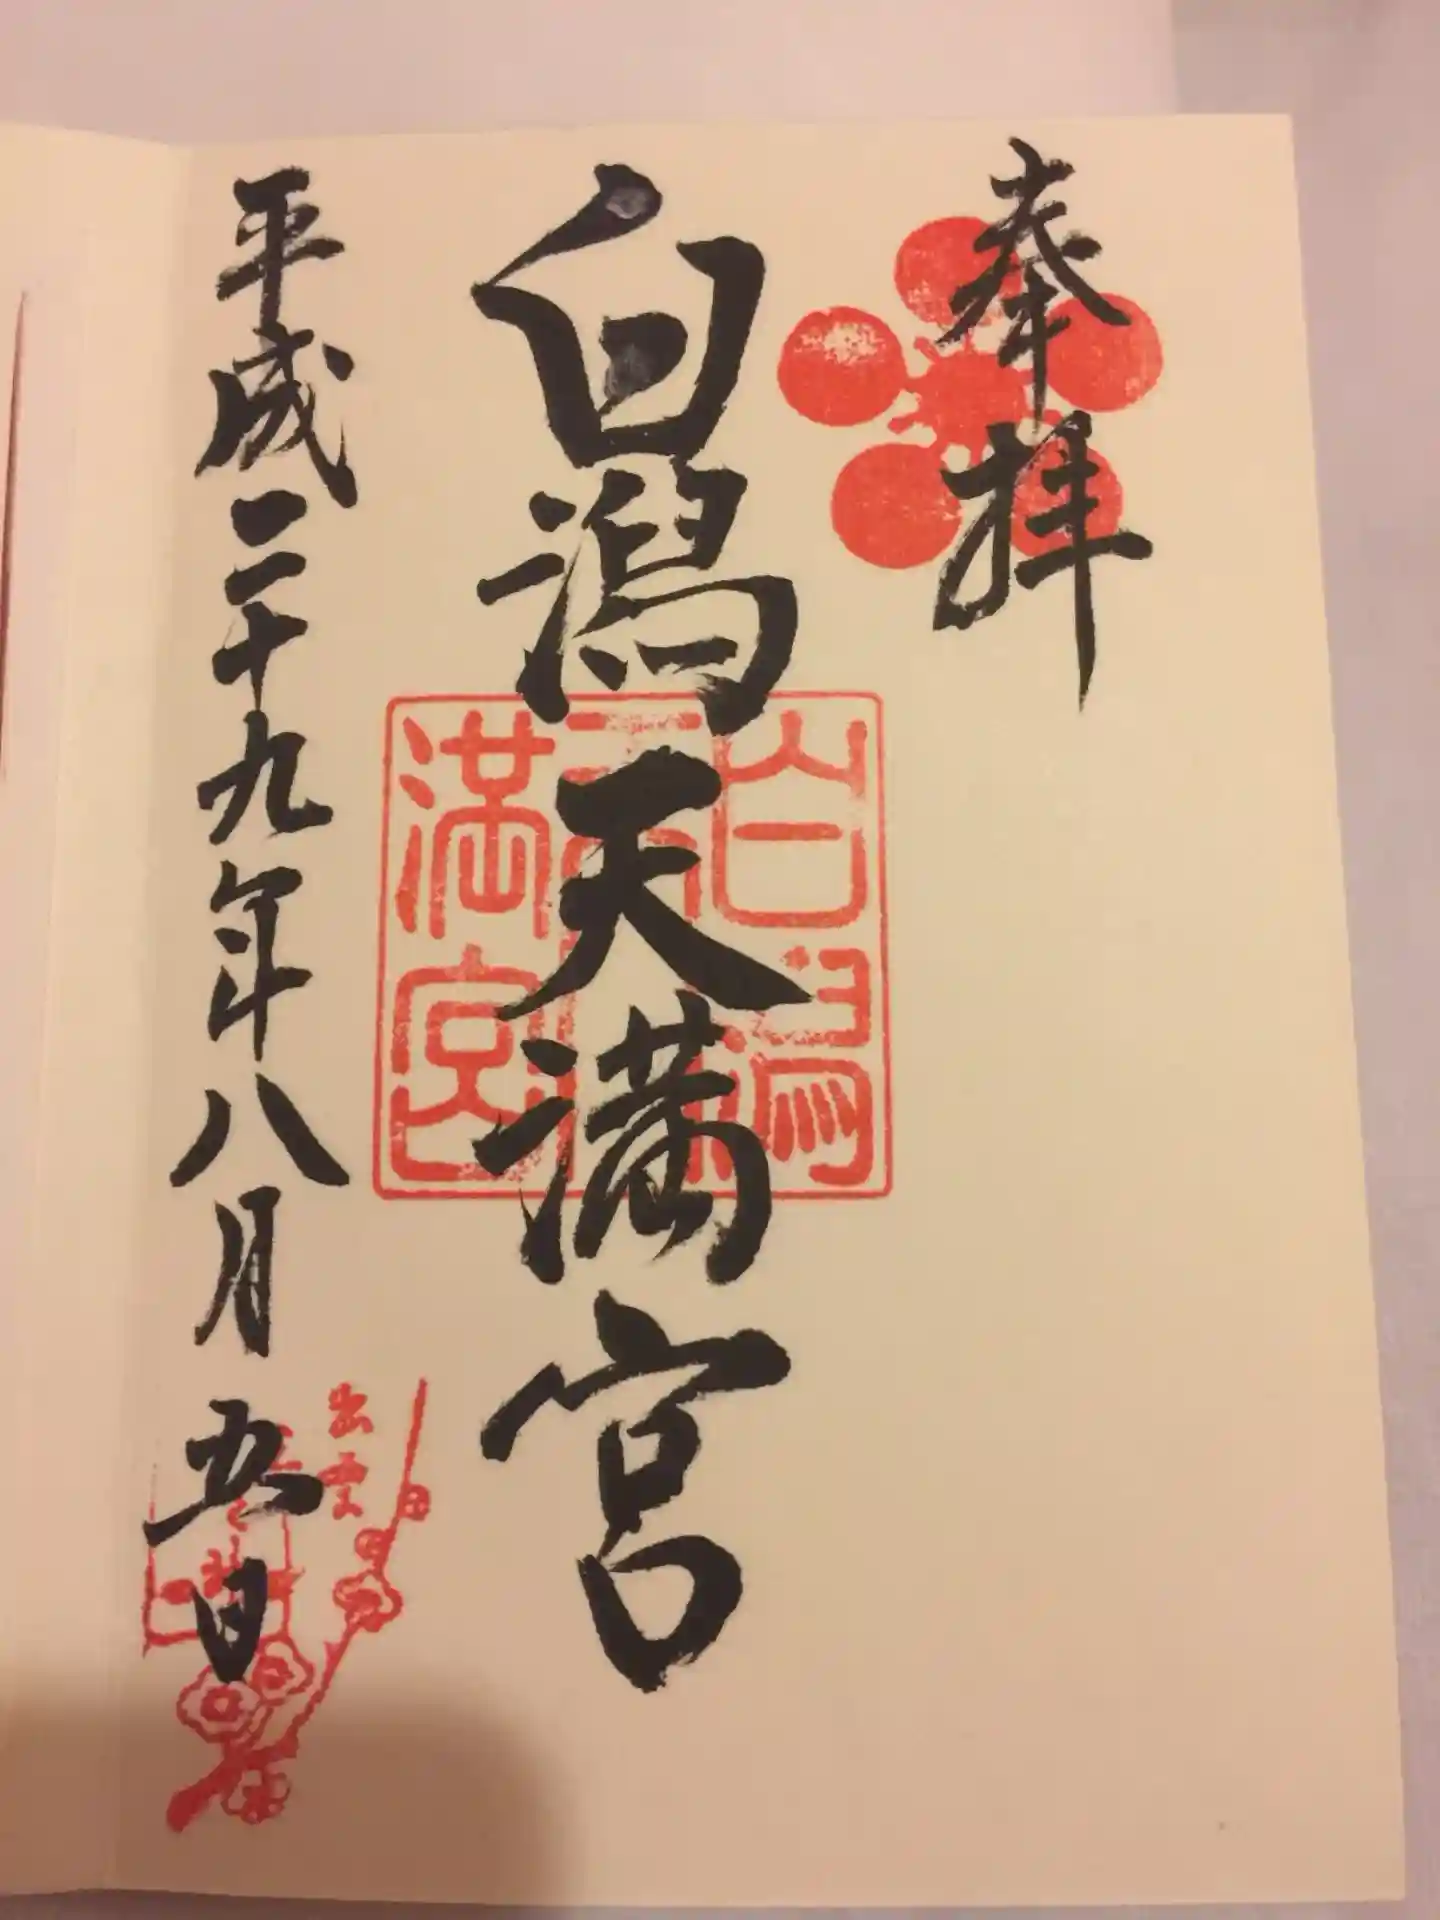 奉拝
白潟天満宮
白潟
天
満宮
平成二十九年八月五日
出雲